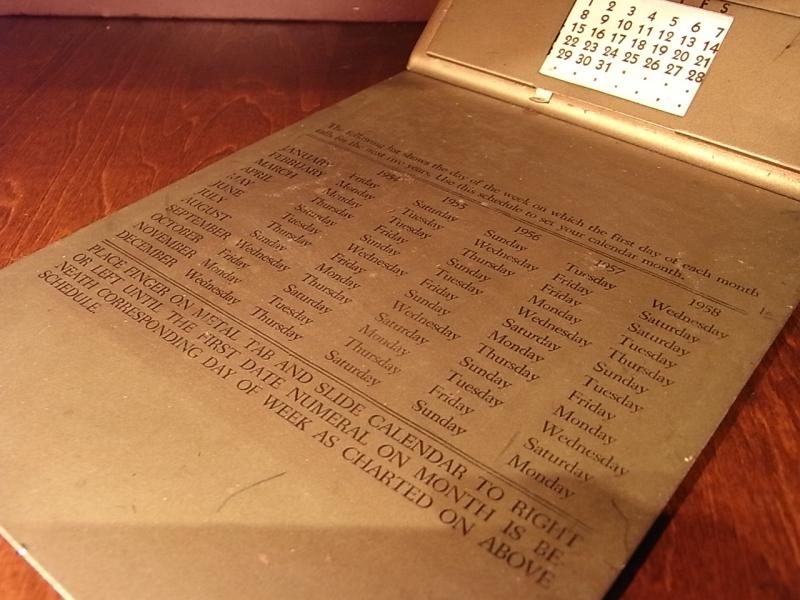 F S
1 2 3 4 5 6 7
8 9 10 11 12 13 14
15 16 17 18 19 20 21
22 23 24 25 26 27 28
29 30 31
The following list shows the day of the week on which the first day of each month
falls for the next five years. Use this schedule to set your calendar month.
1954 1955 1956 1957 1958
JANUARY Friday Saturday Sunday Tuesday Wednesday
FEBRUARY Monday Tuesday Wednesday Friday Saturday
MARCH Monday Tuesday Thursday Friday Saturday
APRIL Thursday Friday Sunday Monday Tuesday
MAY Saturday Sunday Tuesday Wednesday Thursday
JUNE Tuesday Wednesday Friday Saturday Sunday
JULY Thursday Friday Sunday Monday Tuesday
AUGUST Sunday Monday Wednesday Thursday Friday
SEPTEMBER Wednesday Thursday Saturday Sunday Monday
OCTOBER Friday Saturday Monday Tuesday Wednesday
NOVEMBER Monday Tuesday Thursday Friday Saturday
DECEMBER Wednesday Thursday Saturday Sunday Monday
PLACE FINGER ON METAL TAB AND SLIDE CALENDAR TO RIGHT
OR LEFT UNTIL THE FIRST DATE NUMERAL ON MONTH IS BE
NEATH CORRESPONDING DAY OF WEEK AS CHARTED ON ABOVE
SCHEDULE.